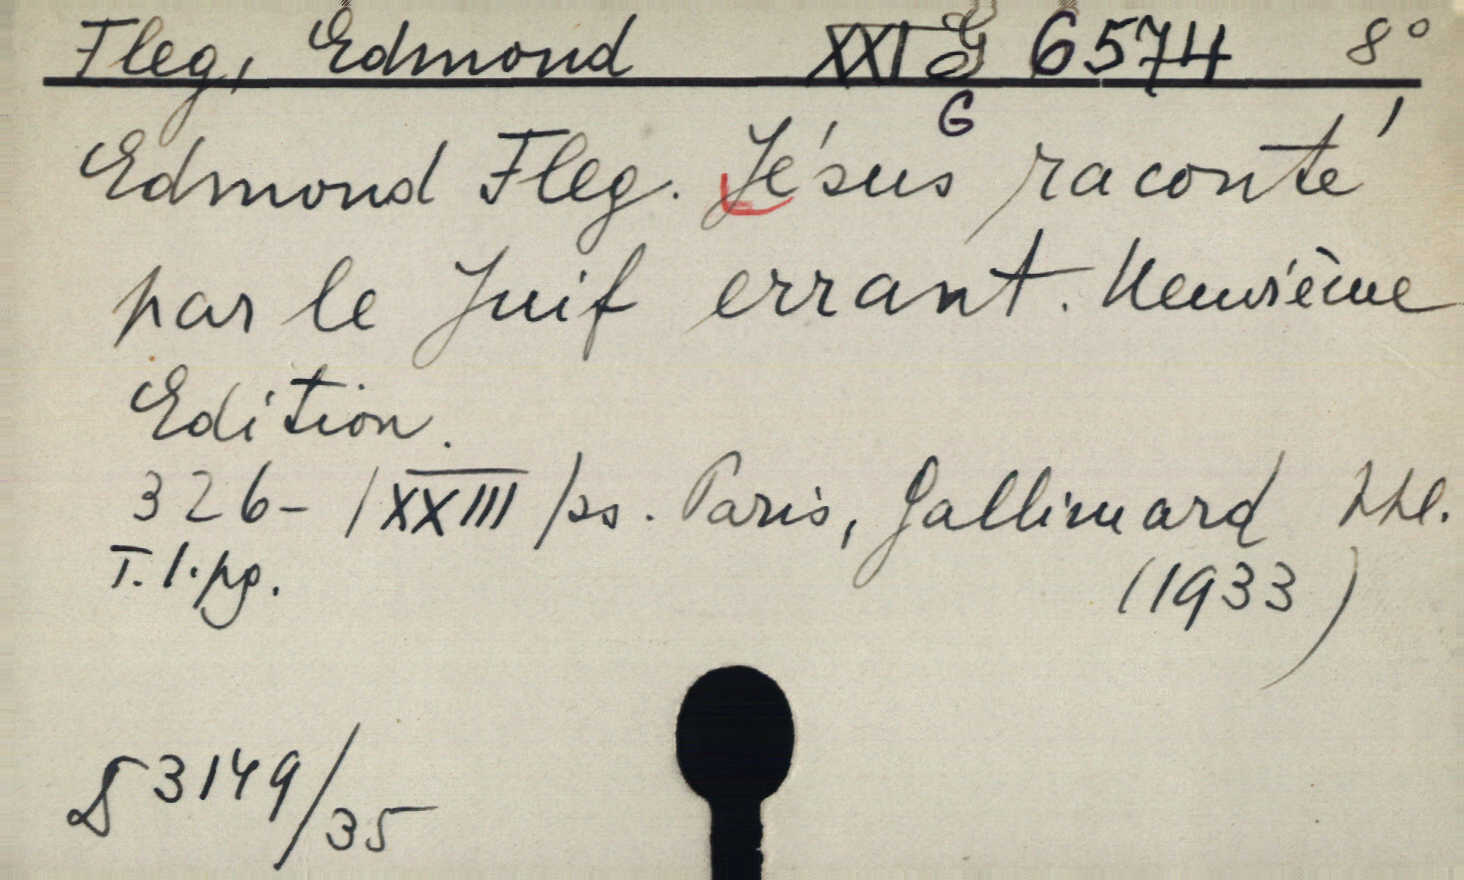 Fleg, Edmond XXI G 6574 8°
G
Edmond Fleg. Jésus raconté
par le Juif errant. Neuvième
Edition.
326- /XXIII/ ss. Paris, Gallimard
T. l. pg. (1933)
3149/35